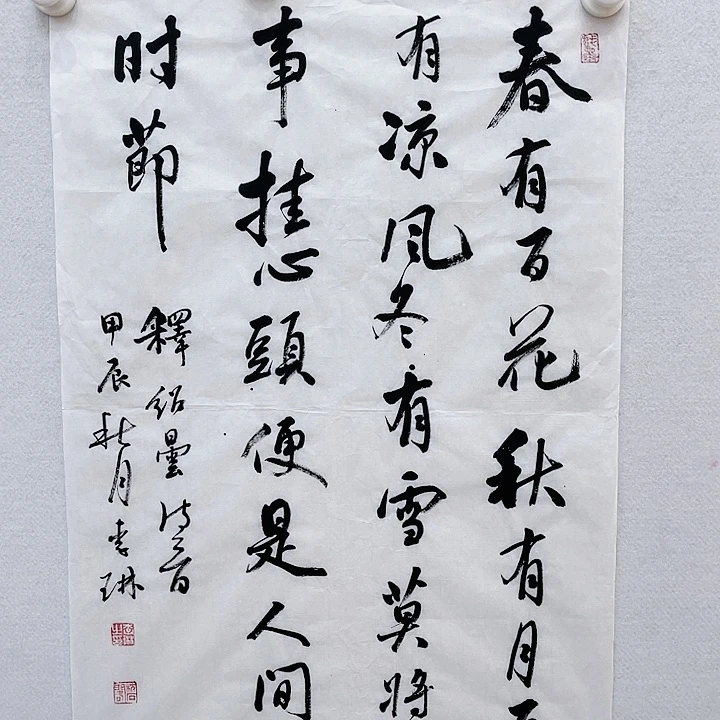 春有百花秋有月夏
有凉风冬有雪莫将
事挂心頭便是人间
时節
釋绍曇诗一首
甲辰秋月李琳